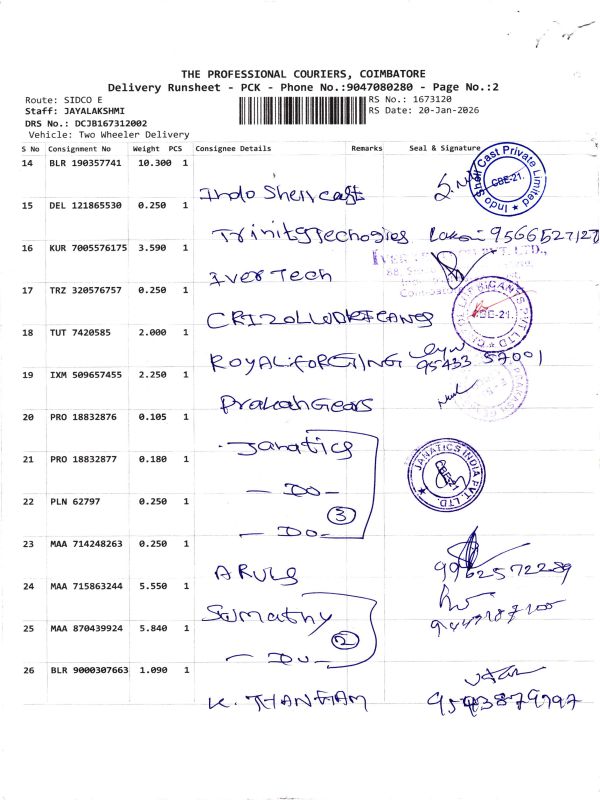 THE PROFESSIONAL COURIERS, COIMBATORE
Delivery Runsheet - PCK - Phone No.:9047080280 - Page No.:2
Route: SIDCO E
RS No.: 1673120
Staff: JAYALAKSHMI
RS Date: 20-Jan-2026
DRS No.: DCJB167312002
Vehicle: Two Wheeler Delivery
S No Consignment No Weight PCS Consignee Details Remarks Seal & Signature
14 BLR 190357741 10.300 1
Indo Shell cast
Indo Shell Cast Private Limited
CBE-21.
15 DEL 121865530 0.250 1
Trinity Techogies 9566527127
16 KUR 7005576175 3.590 1
IverTech
17 TRZ 320576757 0.250 1
CRIZOLLUBRICANGS
CBE-21.
18 TUT 7420585 2.000 1
ROYAL FORGING 95433 57001
19 IXM 509657455 2.250 1
Prakash Gears
20 PRO 18832876 0.105 1
Janatics
21 PRO 18832877 0.180 1
- DO -
JANATICS INDIA PVT. LTD.
22 PLN 62797 0.250 1
3
- DO -
23 MAA 714248263 0.250 1
ARULS 9962572289
24 MAA 715863244 5.550 1
Sumathy
25 MAA 870439924 5.840 1
2
- DO -
26 BLR 9000307663 1.090 1
K. THANGAM